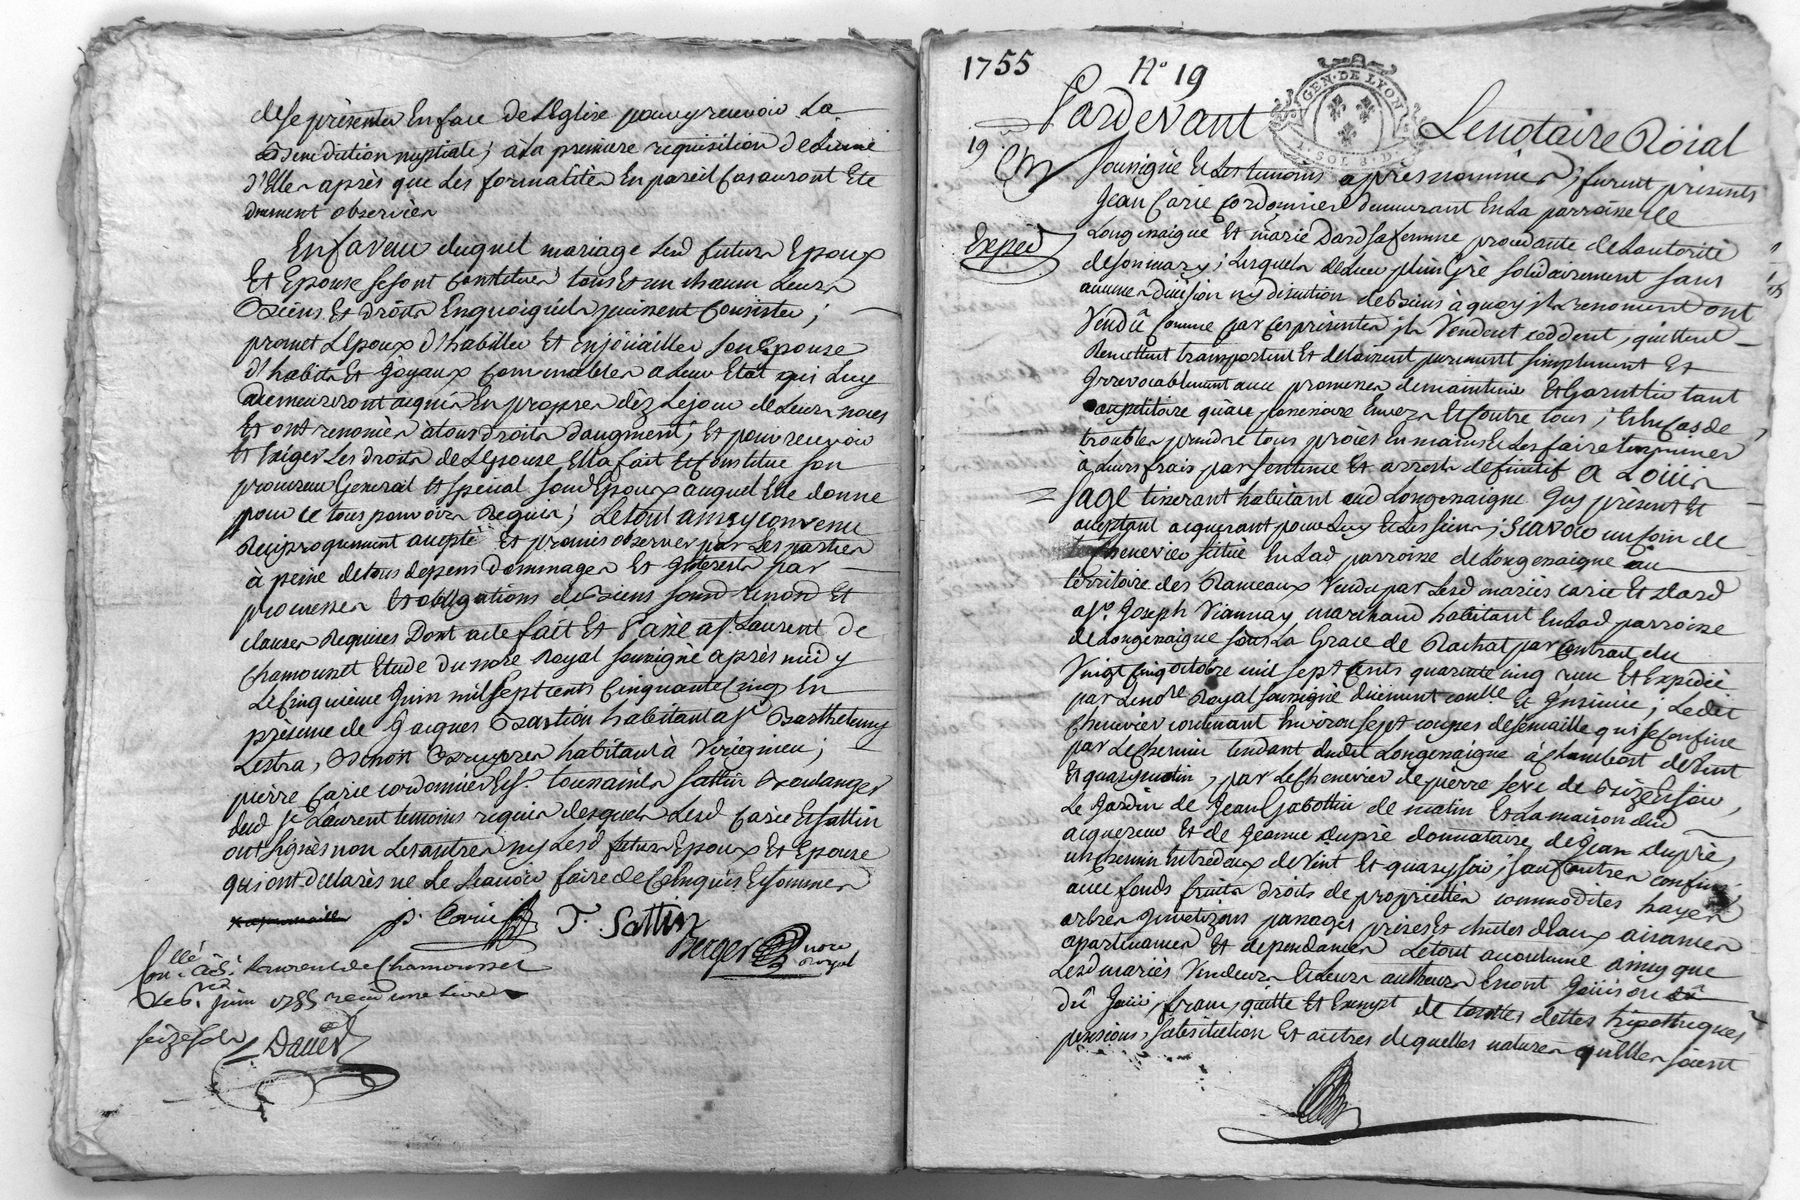 de se présenter en face de L'Eglise pour y recevoir La
Benediction nuptiale, à La premiere requisition de L'une
d'Elles après que Les formalités En pareil Cas auront Eté
duement observées
En faveur duquel mariage Lesd futurs Epoux
Et Epouse se sont Constitués tous Et un chacun Leurs
Biens Et droits En quoi qu'ils puissent Consister;
promet L'Epoux d'habiller Et enjoüailler son Epouse
d'habits Et Joyaux Convenables à Leur Etat qui Luy
demeureront acquis En propres dez Le jour de Leurs noces
Et ont renoncés à tous droits d'augment; Et pour recevoir
Et Exiger Les droits de L'Epouse Elle a fait Et Constitué son
procureur General Et Special sond Epoux auquel Elle donne
pour ce tous pouvoirs Requis; Le tout ainsy convenu
Reciproquement accepté Et promis observer par Les parties
à peine de tous depens Dommages Et Interests par
promesses Et obligations de Biens soumd Renond Et
clauses Requises Dont acte fait Et Passé à St. Laurent de
Chamousset Etude du no.re Royal soussigné après midy
Le Cinquieme Juin mil Sept cents Cinquante Cinq En
présence de Jacques Bastion habitant à St Barthelemy
Lestra, Benoit habitant à Virigneu;
pierre Carie cordonnier Et Sr. toussaints Sattin Boulanger
dud St Laurent temoins requis desquels Lesd Carie Et Sattin
ont signés non Les autres ny Lesd futurs Epoux Et Epouse
qui ont declarés ne Le Scavoir faire de Ce Enquis Et sommés
p. Carie T. Sattin
Berger no.re Royal
Con.llé à St. Laurent de Chamousset
Le 6. Juin 1755 reçu une Livre
seize sols
1755 N° 19
GEN. DE LYON
1. SOL 8. D
Pardevant Le notaire Roïal
19
soussigné Et Les temoins après nommés, furent présents
Expéd
Jean Carie Cordonnier demeurant En La parroisse de
Longessaigne Et marie Dard sa femme procedante de L'autorité
de son mary; Lesquels de Leur plein Gré solidairement sans
aucune division ny discution de Biens à quoy ils renoncent ont
Vendû Comme par Ces présentes ils Vendent ceddent, quittent
Remettent transportent Et delaissent purement simplement Et
Irrevocablement avec promesses de maintenir Et Garantir tant
au petitoire qu'au possessoire Envers Et Contre tous; Et En Cas de
troubles prendre tous procès En mains Et Les faire terminer
à Leurs frais par sentence Et arrests definitif à Loüis
Sage tisserant habitant aud Longessaigne Icy présent Et
acceptant acquerant pour Luy Et Les siens; Scavoir un Coin de
Chenevier Situé En Lad parroisse de Longessaigne au
territoire des Rameaux Vendu par Lesd mariés Carie Et Dard
à Sr. Joseph Viannay marchand habitant En Lad parroisse
de Longessaigne sous La Grace de Rachat par Contract du
Vingt Cinq octobre mil sept Cents quarante cinq reçu Et Expedié
par Le no.re Royal soussigné duement con.llé Et Insinué; Ledit
Chenevier contenant Environ sept coupes de semaille qui se Confine
par Le chemin tendant dudit Longessaigne à Chambost de Vent
Et quasy matin, par Le Chenevier de pierre Seve de Bize Et soir,
Le Jardin de Jean Gabottin de matin Et La maison dud
acquereur Et de Jeanne Dupré donnataire de Jean Dupré,
un chemin Entredeux de Vent Et quasy soir; sauf autres confins
avec fonds fruits droits de proprietté commodités hayes
arbres Investizons passages prises Et chutes d'Eaux aisances
apartenances Et dependances Le tout accoutumé ainsy que
Lesd mariés Vendeurs Et Leurs autheurs En ont Joüis ou
dû Joüir, franc, quitte Et Exempt de touttes dettes hipotheques
pensions, substitution Et autres de quelles natures qu'elles soient